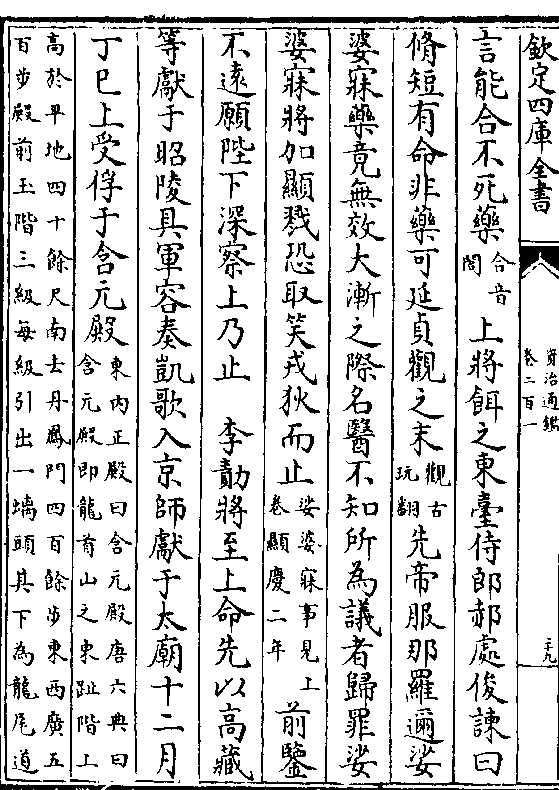 欽定四庫全書
資治通鑑
卷二百一
二十九
言能合不死藥合音閤上將餌之東臺侍郎郝處俊諫曰
脩短有命非藥可延貞觀之末觀古玩翻先帝服那羅邇娑
婆寐藥竟無效大漸之際名醫不知所為議者歸罪娑
婆寐將加顯戮恐取笑戎狄而止娑婆寐事見上卷顯慶二年前鑒
不遠願陛下深察上乃止 李勣將至上命先以高藏
等獻于昭陵具軍容奏凱歌入京師獻于太廟十二月
丁巳上受俘于含元殿東內正殿曰含元殿唐六典曰含元殿即龍首山之東趾階上
高於平地四十餘尺南去丹鳳門四百餘步東西廣五
百步殿前玉階三級每級引出一螭頭其下為龍尾道